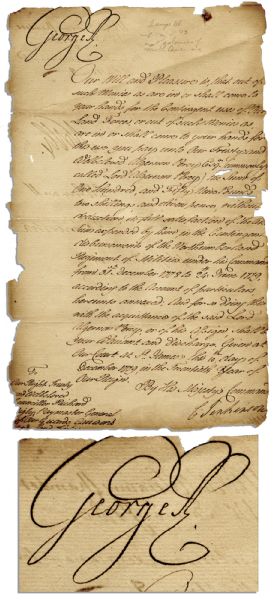 George R.
Our Will and Pleasure is, that out of
such Monies as are in or shall come to
your hands for the Contingent use of Our
Land Forces, or out of such Monies as
are in or shall come to your hands for
the use, you pay unto Our Trusty and
Welbeloved Algernon Percy Esqr. Commonly
called Lord Algernon Percy, the Sum of
One Hundred, and Fifty Pounds
two Shillings, and three pence, without
deduction, in full satisfaction of the like
Sum expended by him in the Contingent
disbursements of the Northumberland
Regiment of Militia under his Command
from 25th December 1778 to 24 Novr. 1779,
according to the Account of particulars
hereunto annexed. And for so doing this
with the acquittance of the said Lord
Algernon Percy, or of his Assigns shall be
your Warrant and Discharge. Given at
Our Court at St. James's this day of
December 1779, in the Twentieth Year of
Our Reign.
By His Majestys Command
C Jenkinson
To
Our Right Trusty
and Welbeloved
Councillor Richard
Paymaster General
of Our Guards Garrisons
George R.